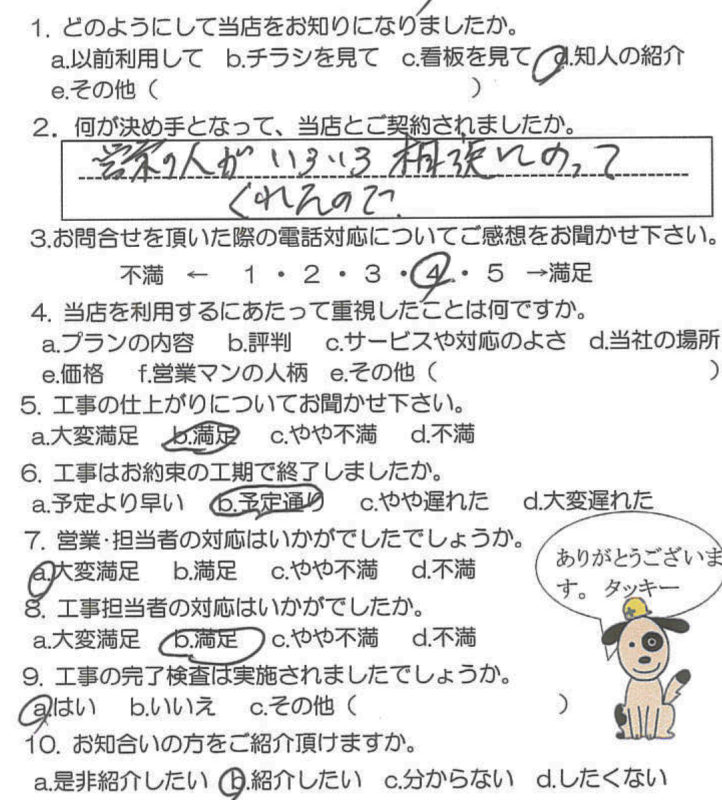 1. どのようにして当店をお知りになりましたか。
a.以前利用して b.チラシを見て c.看板を見て d.知人の紹介
e.その他（ ）
2. 何が決め手となって、当店とご契約されましたか。
営業の人がいろいろ相談にのって
くれたので。
3.お問合せを頂いた際の電話対応についてご感想をお聞かせ下さい。
不満 ← 1・2・3・4・5 →満足
4. 当店を利用するにあたって重視したことは何ですか。
a.プランの内容 b.評判 c.サービスや対応のよさ d.当社の場所
e.価格 f.営業マンの人柄 e.その他（ ）
5. 工事の仕上がりについてお聞かせ下さい。
a.大変満足 b.満足 c.やや不満 d.不満
6. 工事はお約束の工期で終了しましたか。
a.予定より早い b.予定通り c.やや遅れた d.大変遅れた
7. 営業・担当者の対応はいかがでしたでしょうか。
a.大変満足 b.満足 c.やや不満 d.不満
8. 工事担当者の対応はいかがでしたか。
a.大変満足 b.満足 c.やや不満 d.不満
9. 工事の完了検査は実施されましたでしょうか。
a.はい b.いいえ c.その他（ ）
10. お知合いの方をご紹介頂けますか。
a.是非紹介したい b.紹介したい c.分からない d.したくない
ありがとうございま
す。 タッキー